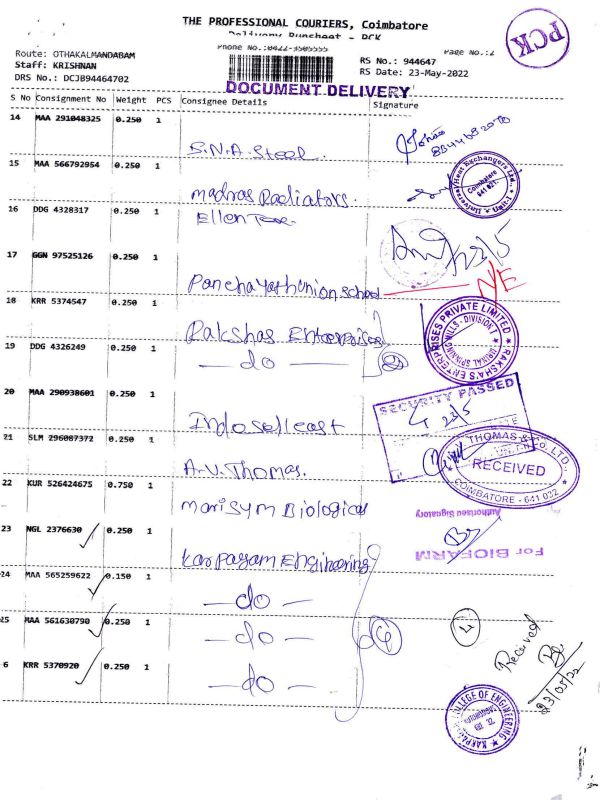 THE PROFESSIONAL COURIERS, Coimbatore
Delivery Runsheet - PCK
PCK
Phone No.:0422-3505555
Page No.:2
Route: OTHAKALMANDABAM
Staff: KRISHNAN
DRS No.: DCJB94464702
RS No.: 944647
RS Date: 23-May-2022
DOCUMENT DELIVERY
S No Consignment No Weight PCS Consignee Details Signature
14 MAA 291048325 0.250 1
S.N.A. Steel.
15 MAA 566792954 0.250 1
Madras Radiators.
16 DDG 4328317 0.250 1
Ellen
17 GGN 97525126 0.250 1
Panchayath Union School
N/E
18 KRR 5374547 0.250 1
Rakshas Enterprises
19 DDG 4326249 0.250 1
— do —
2
RAKSHA'S ENTERPRISES PRIVATE LIMITED
SPINNING MILLS - DIVISION I
20 MAA 290938601 0.250 1
Indo sell cast
SECURITY PASSED
21 SLM 296087372 0.250 1
A.V. Thomas.
THOMAS & CO. LTD.,
RECEIVED
COIMBATORE - 641 032
22 KUR 526424675 0.750 1
Marisym Biological
Authorised Signatory
For BIOFARM
23 NGL 2376630 0.250 1
Karpagam Engineering
24 MAA 565259622 0.150 1
— do —
25 MAA 561630790 0.250 1
— do —
4
4
Received
6 KRR 5370920 0.250 1
— do —
23/05/22
COLLEGE OF ENGINEERING